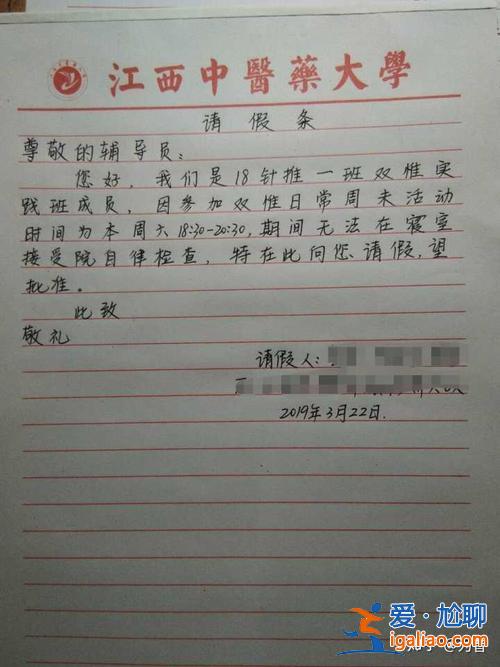 江西中醫藥大學
请假条
尊敬的辅导员：
您好，我们是18针推一班双惟实
践班成员，因参加双惟日常周末活动
时间为本周六18:30-20:30,期间无法在寝室
接受院自律检查，特在此向您请假，望
批准。
此致
敬礼
请假人：
2019年3月22日.
爱·尬聊
igaliao.com
知乎